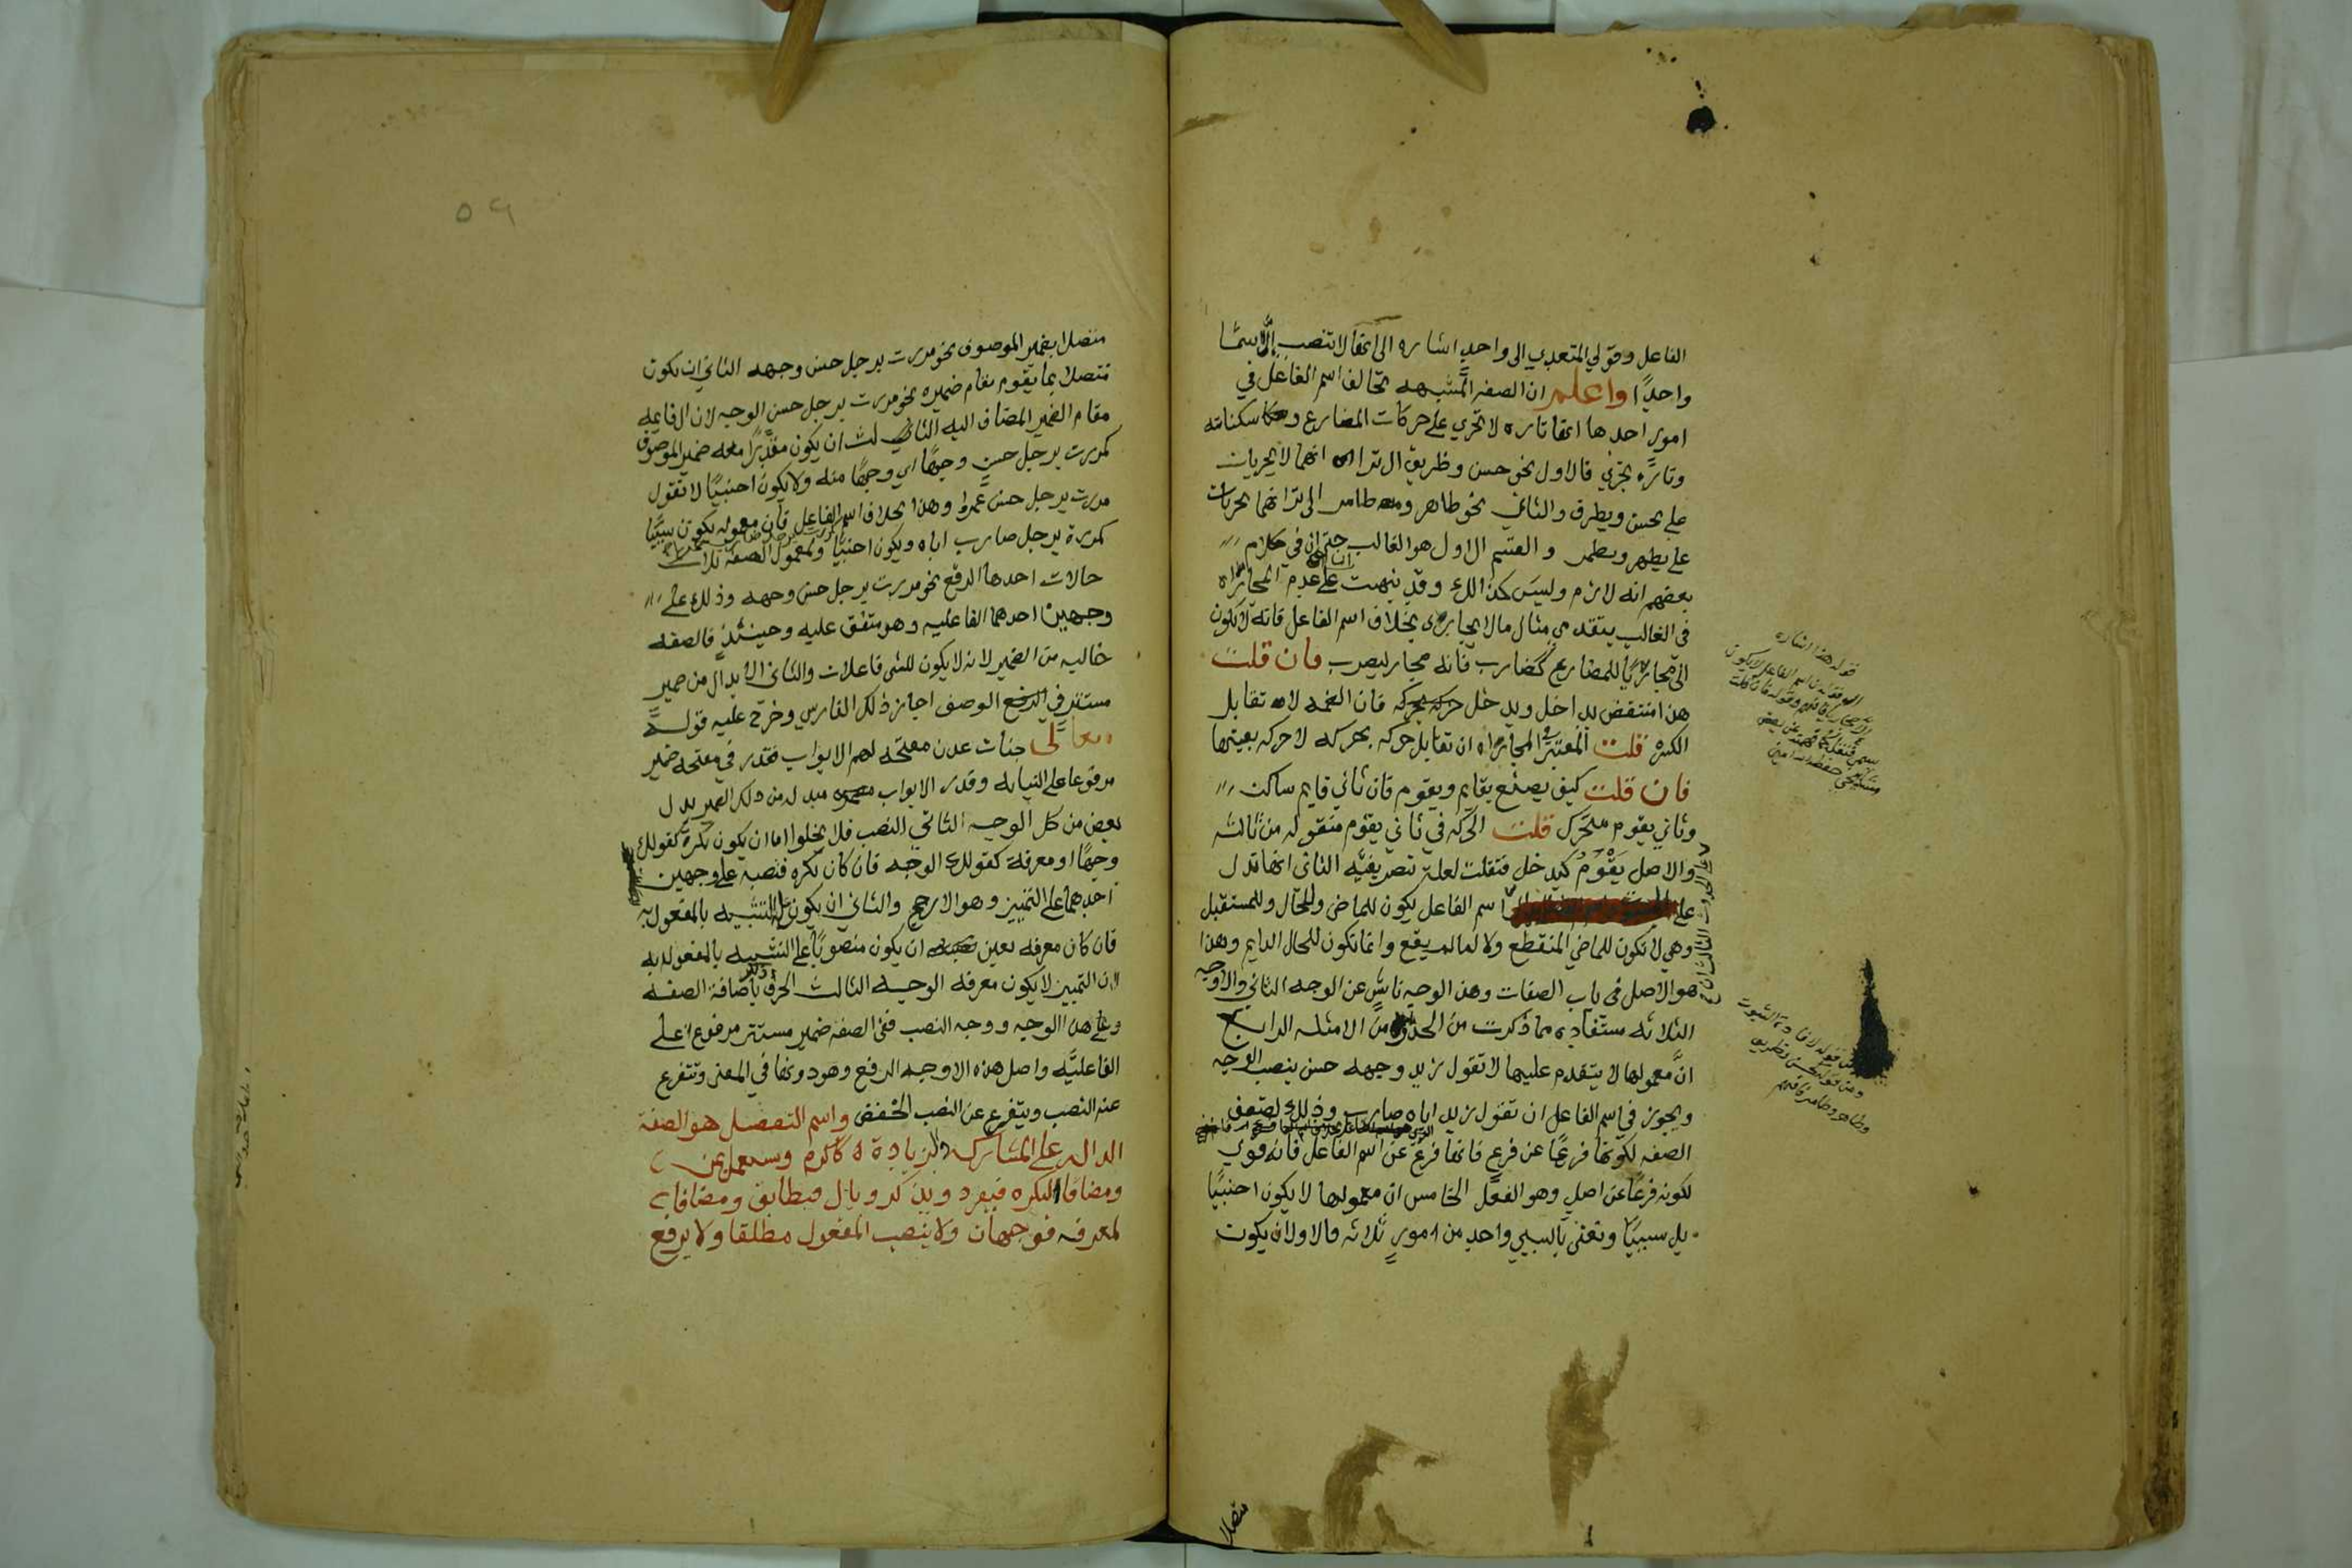 الفاعل وقولي المتعدي الى واحد اشاره الى انها لا تنصب الا اسما
واحدًا واعلم ان الصفه المشبهه تخالف اسم الفاعل في
امور احدها انها تاره لا تجري على حركات المضارع وسكناته
وتارة تجري فالاول نحو حسن وظريف ال ترا انهما لا يجريان
على يحسن ويظرف والثاني نحو طاهر وضامر الى ترا انهما يجريان
على يطهر ويضمر والقسم الاول هو الغالب حتى ان في كلام
بعضهم انه لازم وليس كذلك وقد نبهت على عدم المجاراه
في الغالب بتقديم مثال ما لا يجاري بخلاف اسم الفاعل فانه لا يكون
الى مجاريًا للمضارع كضارب فانه مجار ليضرب فان قلت
هذا منتقض بداخل ويدخل فان الضمه لا تقابل
الكسره قلت المعتبر في المجاراه ان تقابل حركه بحركه لا حركه بعينها
فان قلت كيف يصنع بقايم ويقوم فان ثاني قايم ساكن
وثاني يقوم متحرك قلت الحركه في ثاني يقوم منقوله من ثالثه
والاصل يَقْوُمُ كيدخل فنقلت لعلة تصريفيه الثاني انها تدل
على اسم الفاعل يكون للماضي وللحال وللمستقبل
وهي لا تكون للماضي المنقطع ولا لما لم يقع وانما تكون للحال الدايم وهذا
هو الاصل في باب الصفات وهذا الوجه ناشٍ عن الوجه الثاني والاوجه
الثلاثه مستفاده مما ذكرت من الحد ومن الامثله الرابع
انَّ معمولها لا يتقدم عليها لا تقول زيد وجهه حسن بنصب الوجه
ويجوز في اسم الفاعل ان تقول زيد اباه ضارب وذلك لضعف
الصفه لكونها فرعًا عن فرع فانها فرع عن اسم الفاعل فانه قوي
لكونه فرعًا عن اصل وهو الفعل الخامس ان معمولها لا يكون اجنبيًا
بل سببيًا ونعني بالسببي واحد من امور ثلاثه فالاول ان يكون
متصلا
متصلا بضمير الموصوف نحو مررت برجل حسن وجهه الثاني ان يكون
متصلا بما يقوم مقام ضميره نحو مررت برجل حسن الوجه لان ال قايمه
مقام الضمير المضاف اليه الثالث ان يكون مقدرًا معه ضمير الموصوف
كمررت برجل حسن وجهًا اي وجهًا منه ولا يكون اجنبيًا لا تقول
مررت برجل حسن عمرا وهذا بخلاف اسم الفاعل فان معموله يكون سببيًا
كمررة برجل ضارب اباه ويكون اجنبيا ولمعمول الصفه ثلاث
حالات احدها الرفع نحو مررت برجل حسن وجهه وذلك على
وجهين احدهما الفاعليه وهو متفق عليه وحينئذ فالصفه
خاليه من الضمير لانه لا يكون للشي فاعلان والثاني الابدال من ضمير
مستتر في الوصف اجاز ذلك الفارسي وخرّج عليه قوله
تعالى جنات عدن مفتحه لهم الابواب فقدر في مفتحه ضمير
مرفوعا على النيابه وقدر الابواب مبدله من ذلك الضمير بدل
بعض من كل الوجه الثاني النصب فلا يخلوا اما ان يكون نكرة كقولك
وجهًا او معرفة كقولك الوجه فان كان نكره فنصبه على وجهين
احدهما على التمييز وهو الارجح والثاني ان يكون على التشبيه بالمفعول به
فان كان معرفه تعين ان يكون منصوبًا على التشبيه بالمفعول به
لان التمييز لا يكون معرفه الوجه الثالث الجر وذلك باضافة الصفه
وعلى هذا الوجه ووجه النصب ففي الصفه ضمير مستتر مرفوع على
الفاعليَّه واصل هذه الاوجه الرفع وهو دونها في المعنى ويتفرع
عنه النصب ويتفرع عن النصب الخفض واسم التفضيل هو الصفة
الداله على المشاركه والزيادة كاكرم ويستعمل بمن
ومضافا لنكره فيفرد ويذكر وبال فيطابق ومضافا
لمعرفه فوجهان ولا ينصب المفعول مطلقا ولا يرفع